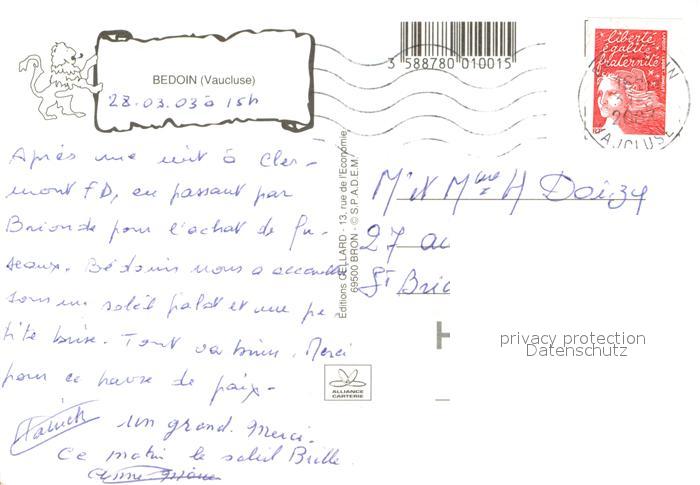 BEDOIN (Vaucluse)
28.03.03 à 15h
Après une nuit à Cler-
mont FD, en passant par
Brionde pour l'achat de fu-
seaux. Bédouin nous a accueilli
sous un soleil pâlot et une pe-
tite brise. Tout va bien. Merci
pour ce havre de paix.
Un grand Merci.
Ce matin le soleil Brille.
3 588780 010015
Editions CELLARD - 13, rue de l'Economie
69500 BRON - © S.P.A.D.E.M.
ALLIANCE
CARTERIE
liberté
égalité
fraternité
VAUCLUSE
M et Mme H Doizy
27 au
St Bric
H
privacy protection
Datenschutz